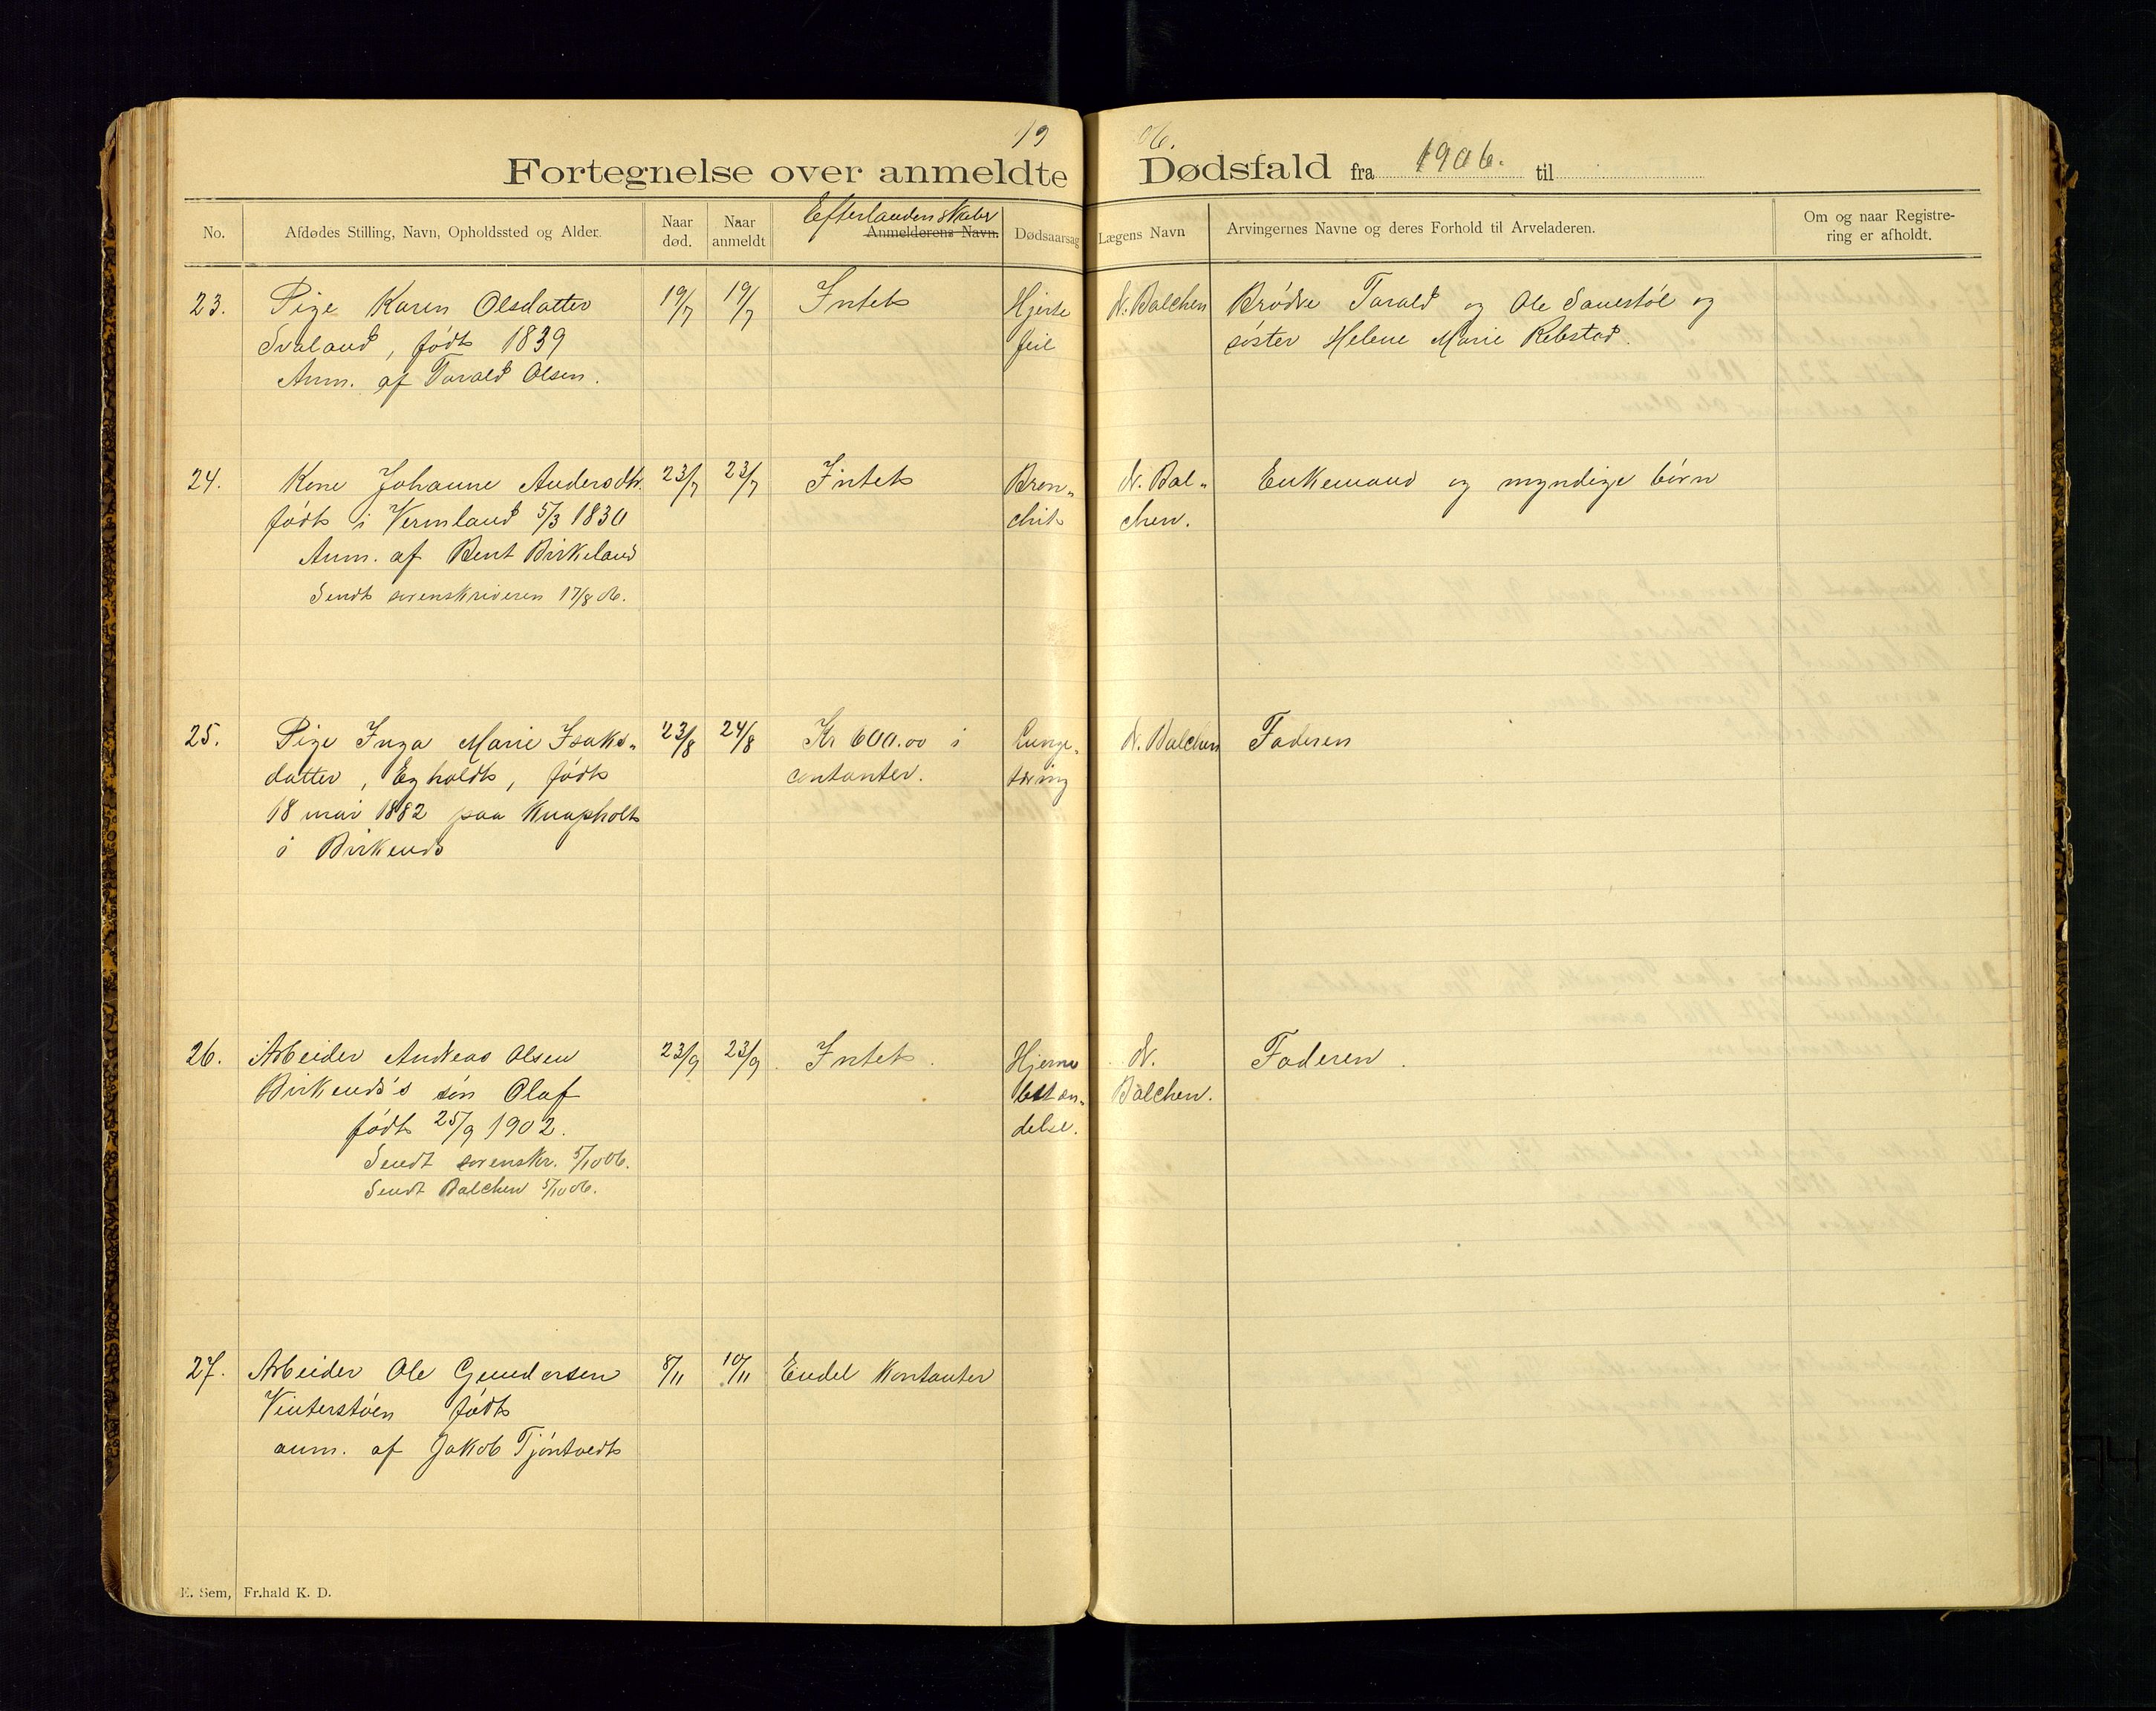 19 06.
Fortegnelse over anmeldte Dødsfald fra 1906. til
No.
Afdødes Stilling, Navn, Opholdssted og Alder.
Naar død.
Naar anmeldt
Efterladenskaber
Anmelderens Navn.
Dødsaarsag
Lægens Navn
Arvingernes Navne og deres Forhold til Arveladeren.
Om og naar Registre-
ring er afholdt.
23. Pige Karen Olsdatter 19/7 19/7 Intet Hjerte N. Balchen Brødre Tarald og Ole Sauestøl og
Svaland, født 1839 feil søster Helene Marie Rebstad.
Anm. af Tarald Olsen.
24. Kone Johanne Andersdtr. 23/7 23/7 Intet Bron- N. Bal- Enkemand og myndige børn
født i Vermland 5/3 1830 chit chen.
Anm. af Bent Birkeland
Sendt sorenskriveren 17/8 06.
25. Pige Inga Marie Isaks- 23/8 24/8 Kr 600.00 i Lunge- N. Balchen Faderen
datter, Egholdt, født contanter. tæring
18 mai 1882 paa Knapholt
i Birkenes
26. Arbeider Andreas Olsen 23/9 23/9 Intet. Hjerne N. Faderen.
Birkenes's søn Olaf betæn- Balchen.
født 25/9 1902. delse.
Sendt sorenskr. 5/10 06.
Sendt Balchen 5/10 06.
27. Arbeider Ole Gundersen 8/11 10/11 Endel Kontanter
Vinterstøen født
anm. af Jakob Tjøntvedt
E. Sem, Fr.hald K. D.